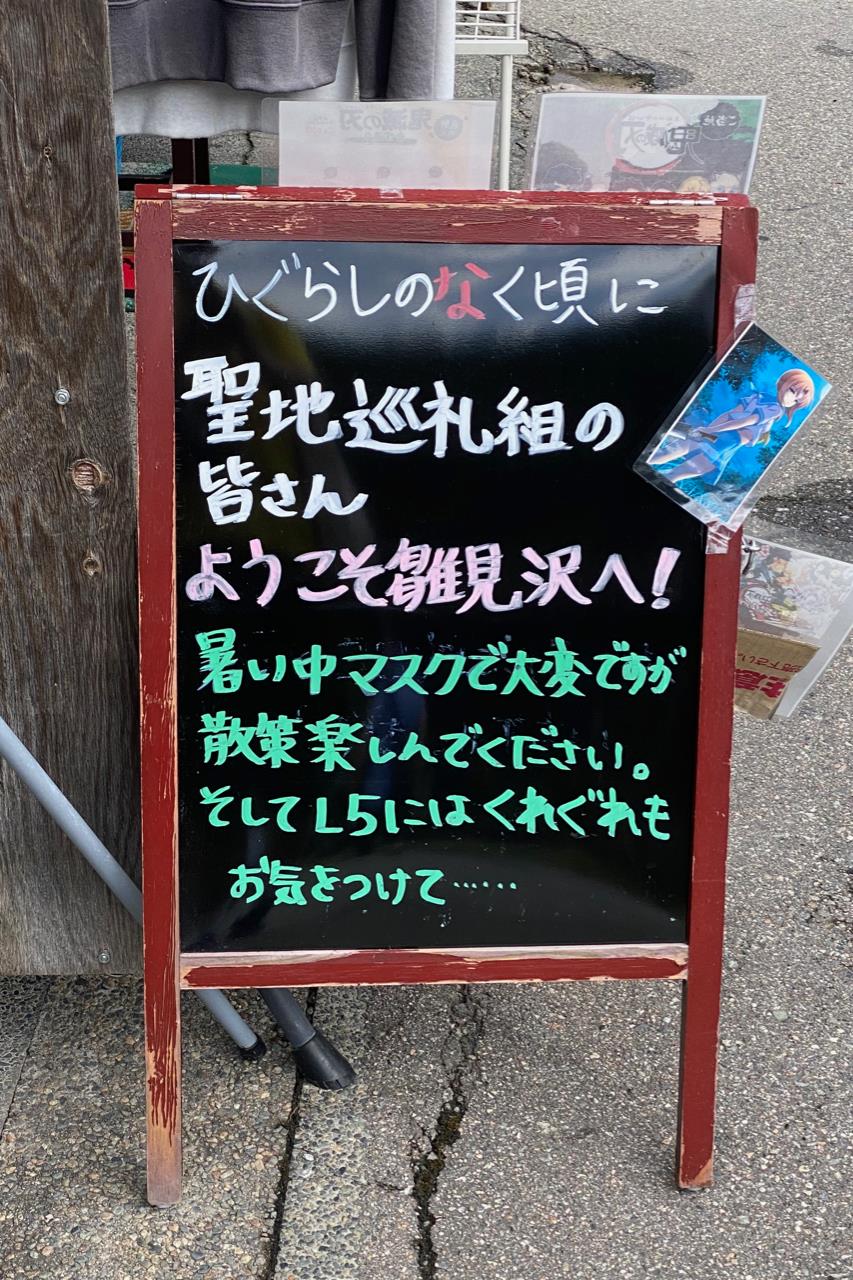 鬼滅の刃
ひぐらしのなく頃に
聖地巡礼組の
皆さん
ようこそ雛見沢へ!
暑い中マスクで大変ですが
散策楽しんでください。
そしてL5にはくれぐれも
お気をつけて……
注意